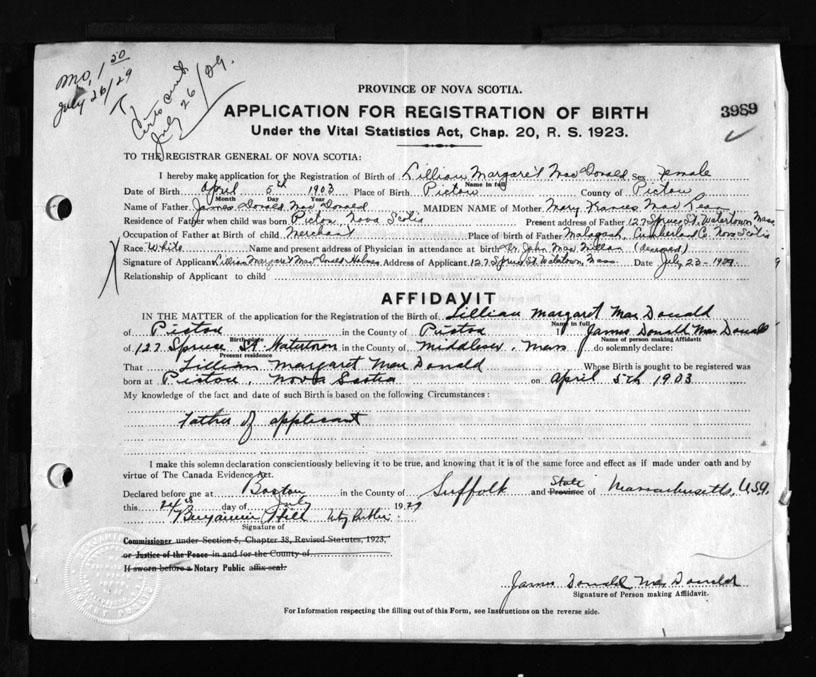 MO, 1 50
July 26/29
Certs sent
July 26/29.
PROVINCE OF NOVA SCOTIA.
APPLICATION FOR REGISTRATION OF BIRTH
3989
Under the Vital Statistics Act, Chap. 20, R. S. 1923.
TO THE REGISTRAR GENERAL OF NOVA SCOTIA:
I hereby make application for the Registration of Birth of Lillian Margaret Mac Donald Sex Female
Name in full
Date of Birth April 5th 1903 Place of Birth Pictou County of Pictou
Month Day Year
Name of Father James Donald Mac Donald MAIDEN NAME of Mother Mary Frances Mac Lean
Residence of Father when child was born Pictou Nova Scotia Present address of Father 127 Spruce St. Watertown Mass
Occupation of Father at Birth of child Merchant Place of birth of Father Malagash, Cumberland Co. Nova Scotia
Race White Name and present address of Physician in attendance at birth Dr. John Mac Millan (Deceased)
Signature of Applicant Lillian Margaret Mac Donald Holmes Address of Applicant 127 Spruce St. Watertown, Mass Date July 23 - 1929
Relationship of Applicant to child
AFFIDAVIT
IN THE MATTER of the application for the Registration of the Birth of Lillian Margaret Mac Donald
Name in full
of Pictou in the County of Pictou I James Donald Mac Donald
Birth place Name of person making Affidavit
of 127 Spruce St. Watertown in the County of Middlesex, Mass do solemnly declare:
Present residence
That Lillian Margaret Mac Donald Whose Birth is sought to be registered was
born at Pictou, Nova Scotia on April 5th 1903
My knowledge of the fact and date of such Birth is based on the following Circumstances:
Father of applicant
I make this solemn declaration conscientiously believing it to be true, and knowing that it is of the same force and effect as if made under oath and by
virtue of The Canada Evidence Act.
Declared before me at Boston in the County of Suffolk and State Province of Massachusetts, USA.
this 24th day of July 1929
Benjamin Hill Notary Public
Signature of
Commissioner under Section 5, Chapter 38, Revised Statutes, 1923,
or Justice of the Peace in and for the County of
If sworn before a Notary Public affix seal.
James Donald Mac Donald
Signature of Person making Affidavit.
For Information respecting the filling out of this Form, see Instructions on the reverse side.